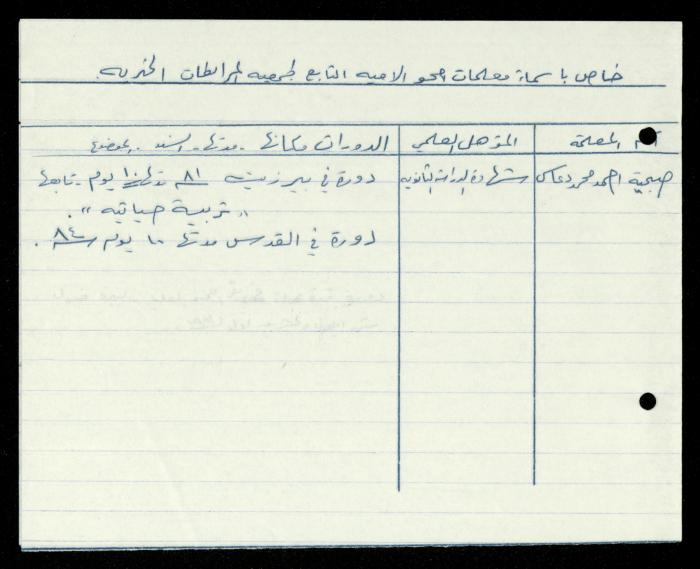 خاص بأسماء معلمات محو الامية التابع لجمعية المرابطات الخيرية.
اسم المعلمة
المؤهل العلمي
الدورات مكانها - مدتها - السنة - الموضوع
صبحية احمد محمد دعاس
شهادة الدراسة الثانوية
دورة في بيرزيت ٨١ مدتها ١٠ يوم - تابعها
"تربية حياتيه".
دورة في القدس مدتها ١٠ يوم سنة ٨٤.